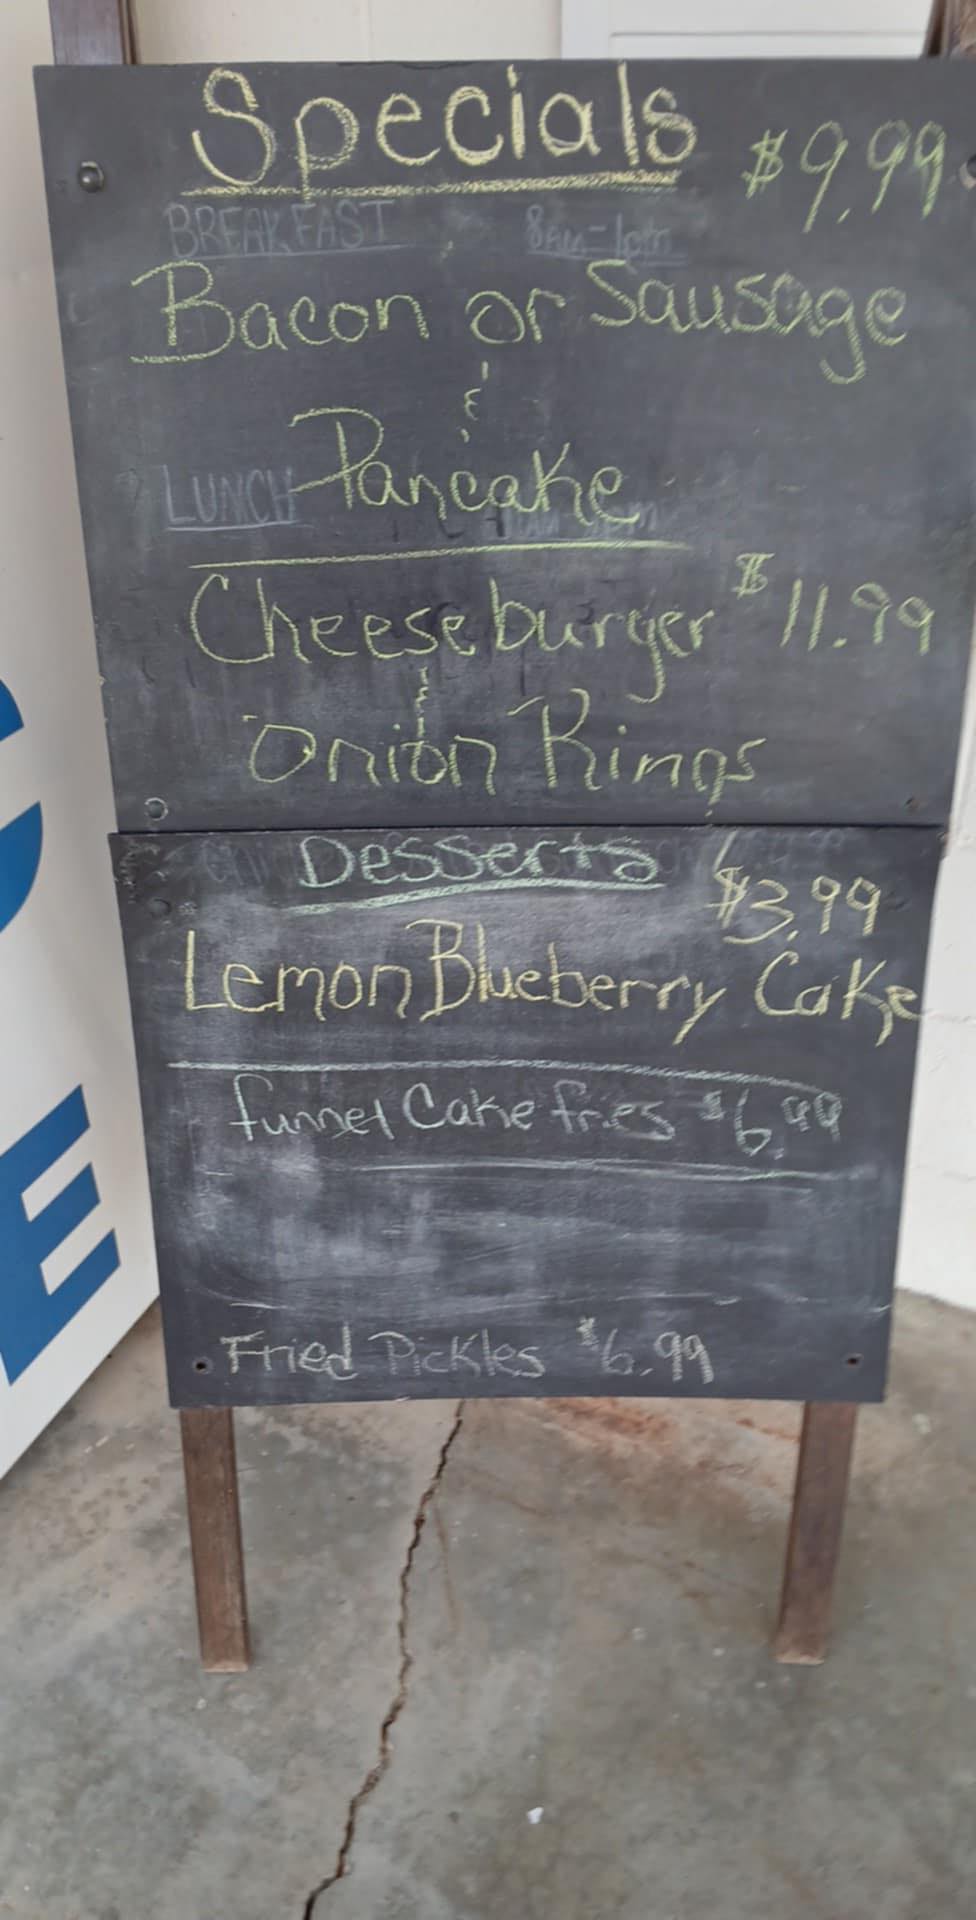 Specials
$9.99
BREAKFAST 8AM-1pm
Bacon or Sausage
&
Pancake
LUNCH
Cheeseburger $11.99
&
Onion Rings
Desserts
$3.99
Lemon Blueberry Cake
funnel Cake fries $6.99
Fried Pickles $6.99
E